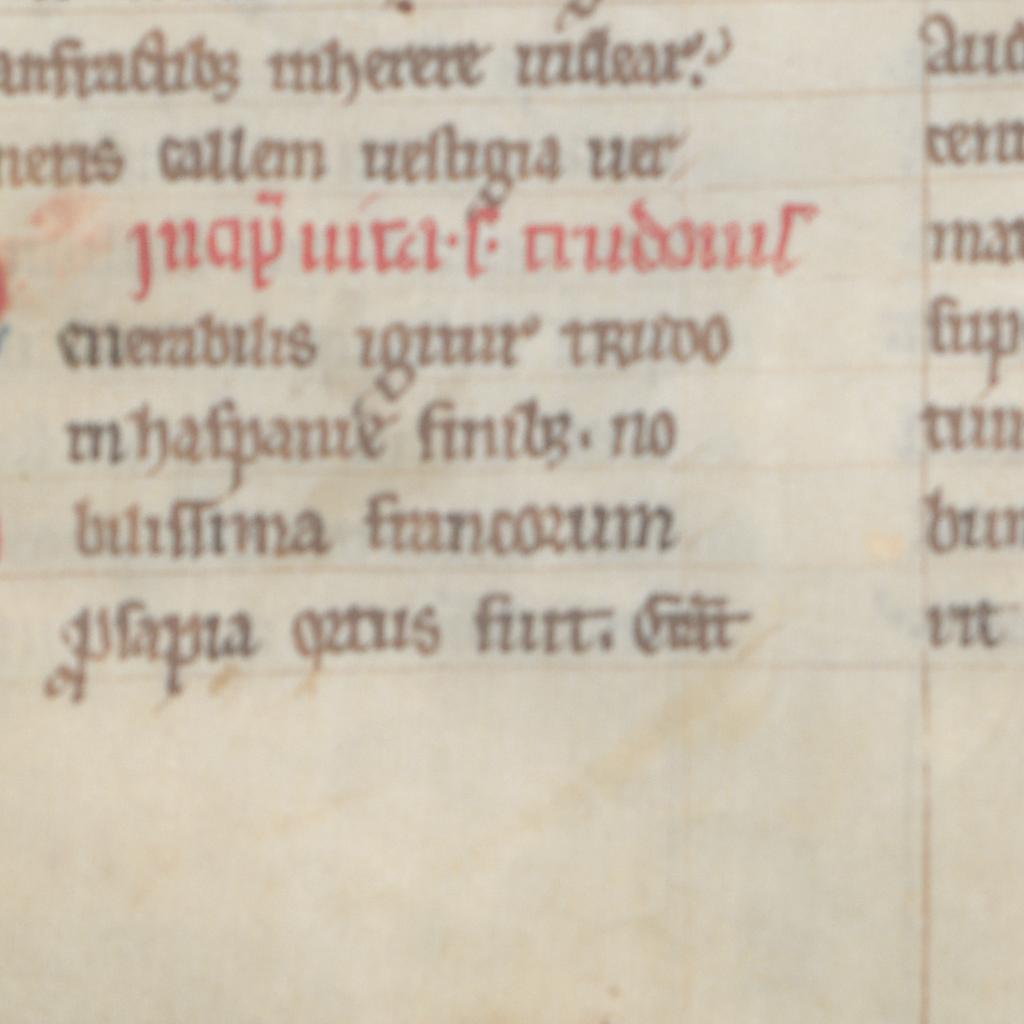 anfractibꝫ inherere uideař?
neris callem uestigia uer
incip̃ uita · s̃ · trudonis
enerabilis igitur trudo
in haspanie finibꝫ · no
bilissima francorum
ꝓsapia ortus fuit.
Aud
cent
mat
sup
bun
uit